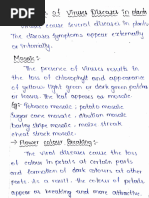 of Viruses Diseases in plants
Viruses cause several diseases in plants
The diseases symptoms appear externally
or internally.
Mosaic:-
The presence of viruses results in
the loss of chlorophyll and appearance
of yellow light green or dark green patches
on leave. The leaf appears as mosaic
eg: Tobacco mosaic, potato mosaic
Sugar cane mosaic, mosaic
barley stripe mosaic, maize mosaic,
streak mosaic.
→ Flower colour Breaking:-
The viral diseases cause the loss
of colour in petals at certain parts
and formation of dark colours at other
parts. As a result, the colour of petals
appear as breaking and more attractive.